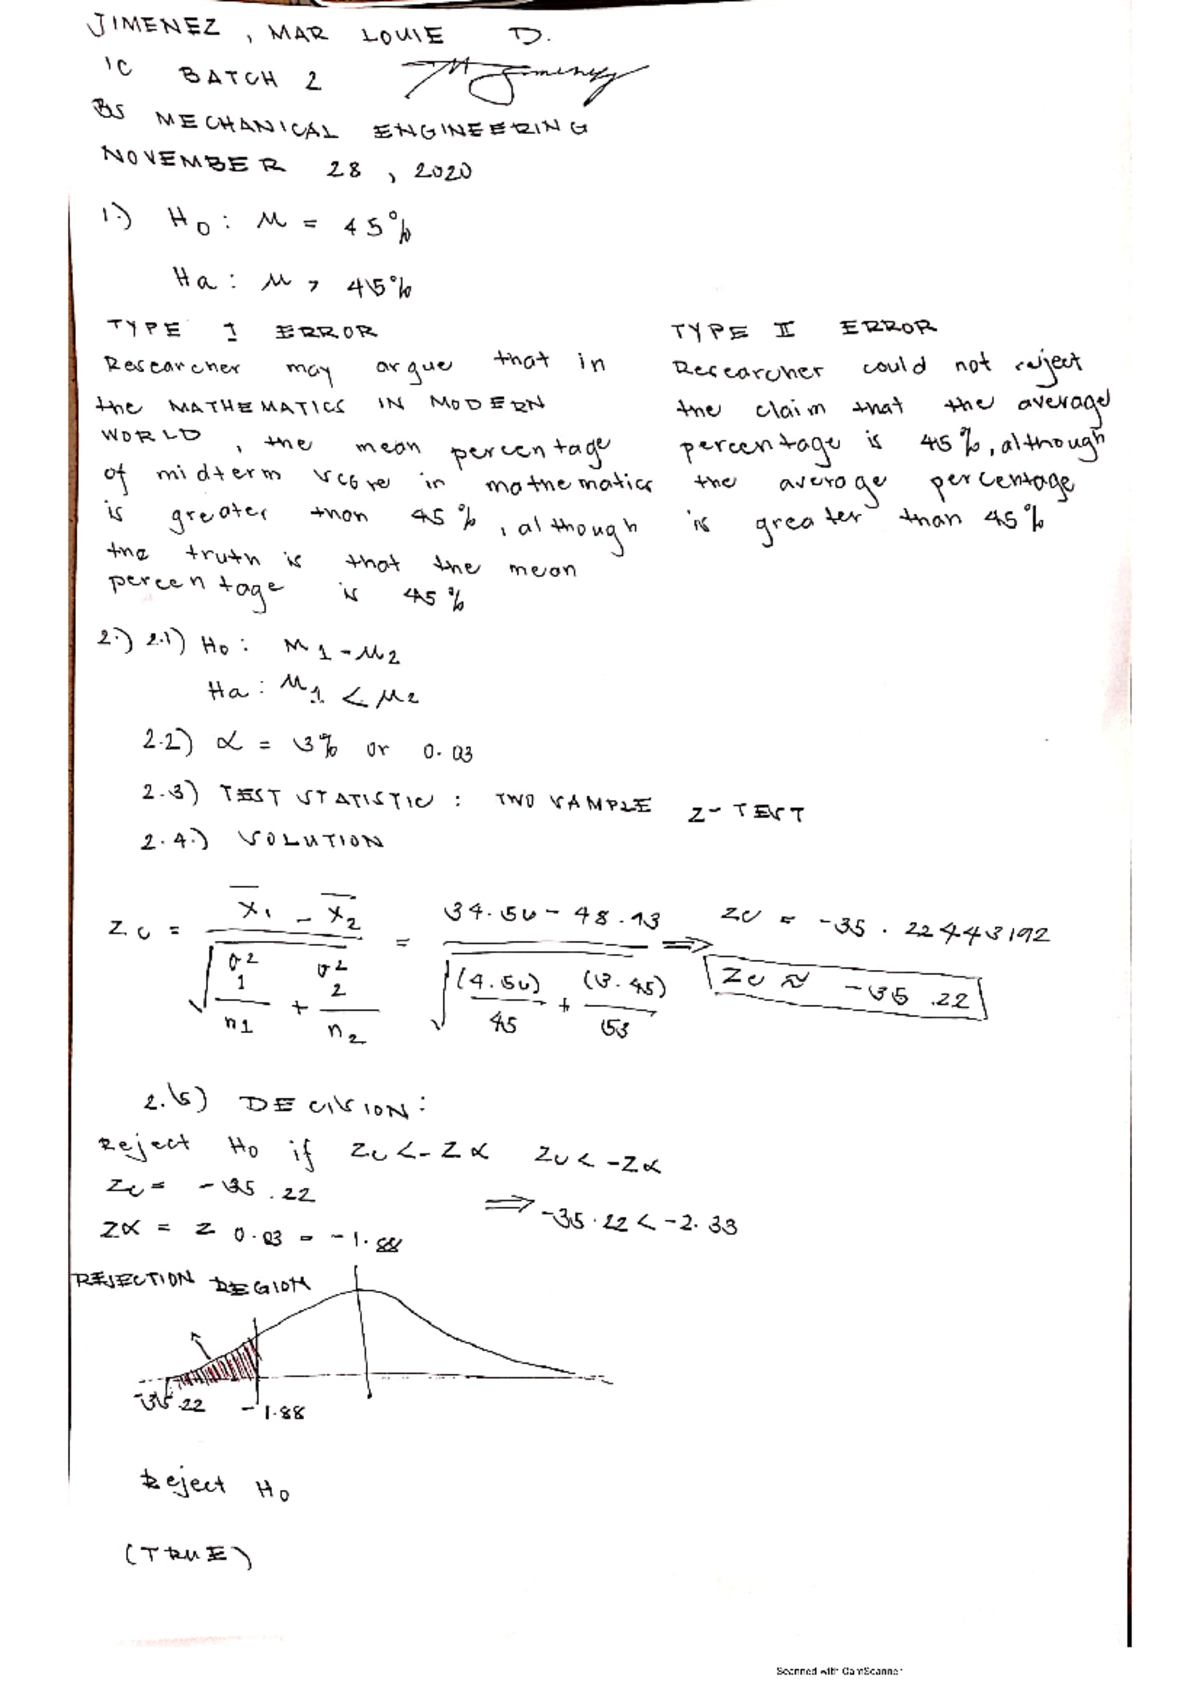 JIMENEZ, MAR LOUIE D.
1C BATCH 2
BS MECHANICAL ENGINEERING
NOVEMBER 28, 2020
1.) H0: μ = 45%
Ha: μ > 45%
TYPE I ERROR
Researcher may argue that in
the MATHEMATICS IN MODERN
WORLD, the mean percentage
of midterm score in mathematics
is greater than 45%, although
the truth is that the mean
percentage is 45%
TYPE II ERROR
Researcher could not reject
the claim that the average
percentage is 45%, although
the average percentage
is greater than 45%
2.) 2.1) H0: μ1 - μ2
Ha: μ1 < μ2
2.2) α = 3% or 0.03
2.3) TEST STATISTIC: TWO SAMPLE Z-TEST
2.4.) SOLUTION
Zc = (x̄1 - x̄2) / √(σ²1/n1 + σ²2/n2) = (34.50 - 48.13) / √((4.50)/45 + (3.45)/53) ⇒ Zc = -35.22443192
Zc ≈ -35.22
2.5) DECISION:
Reject H0 if Zc < -Zα Zc < -Zα
Zc = -35.22
⇒ -35.22 < -2.33
Zα = Z 0.03 = -1.88
REJECTION REGION
-35.22 -1.88
Reject H0
(TRUE)
Scanned with CamScanner